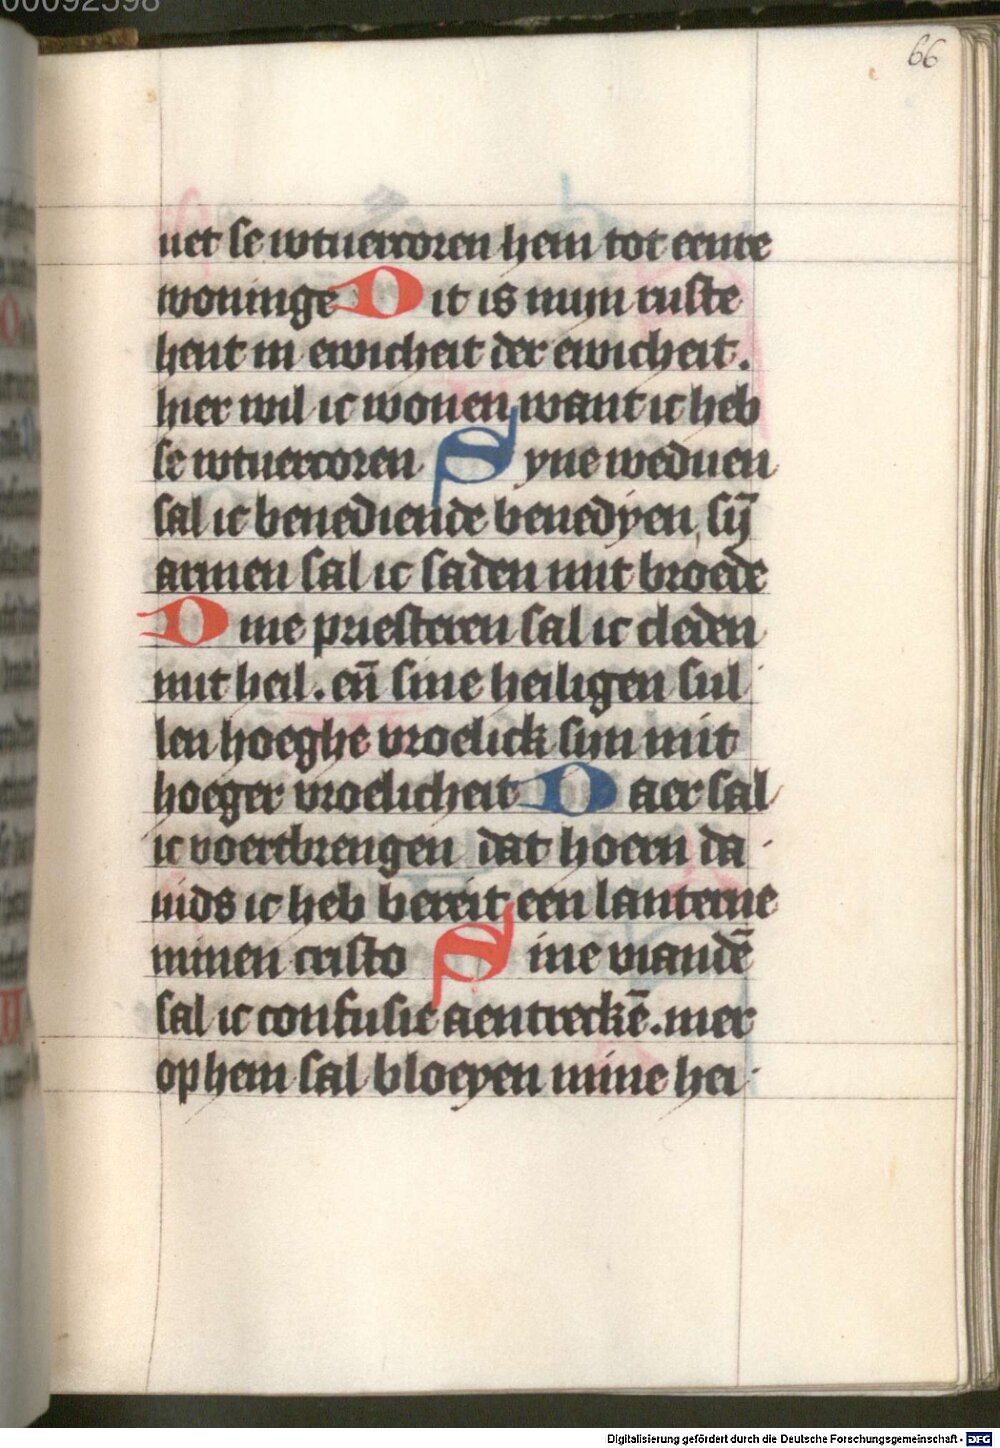 00092598
66
uet se wtuercoren hem tot eenre
woninge Dit is mijn ruste
heut in ewicheit der ewicheit.
hier wil ic wonen want ic heb
se wtuercoren Syne weduen
sal ic benediende benedyen, sÿ
armen sal ic saden mit broede
Dine priesteren sal ic cleden
mit heil. eñ sine heiligen sul
len hoeghe vroelick sijn mit
hoeger vroelicheit Daer sal
ic voertbrengen dat hoern da
uids ic heb bereit een lanterne
minen cristo Sine viandē
sal ic confusie aentreckē. mer
op hem sal bloeyen mine hei
Digitalisierung gefördert durch die Deutsche Forschungsgemeinschaft - DFG